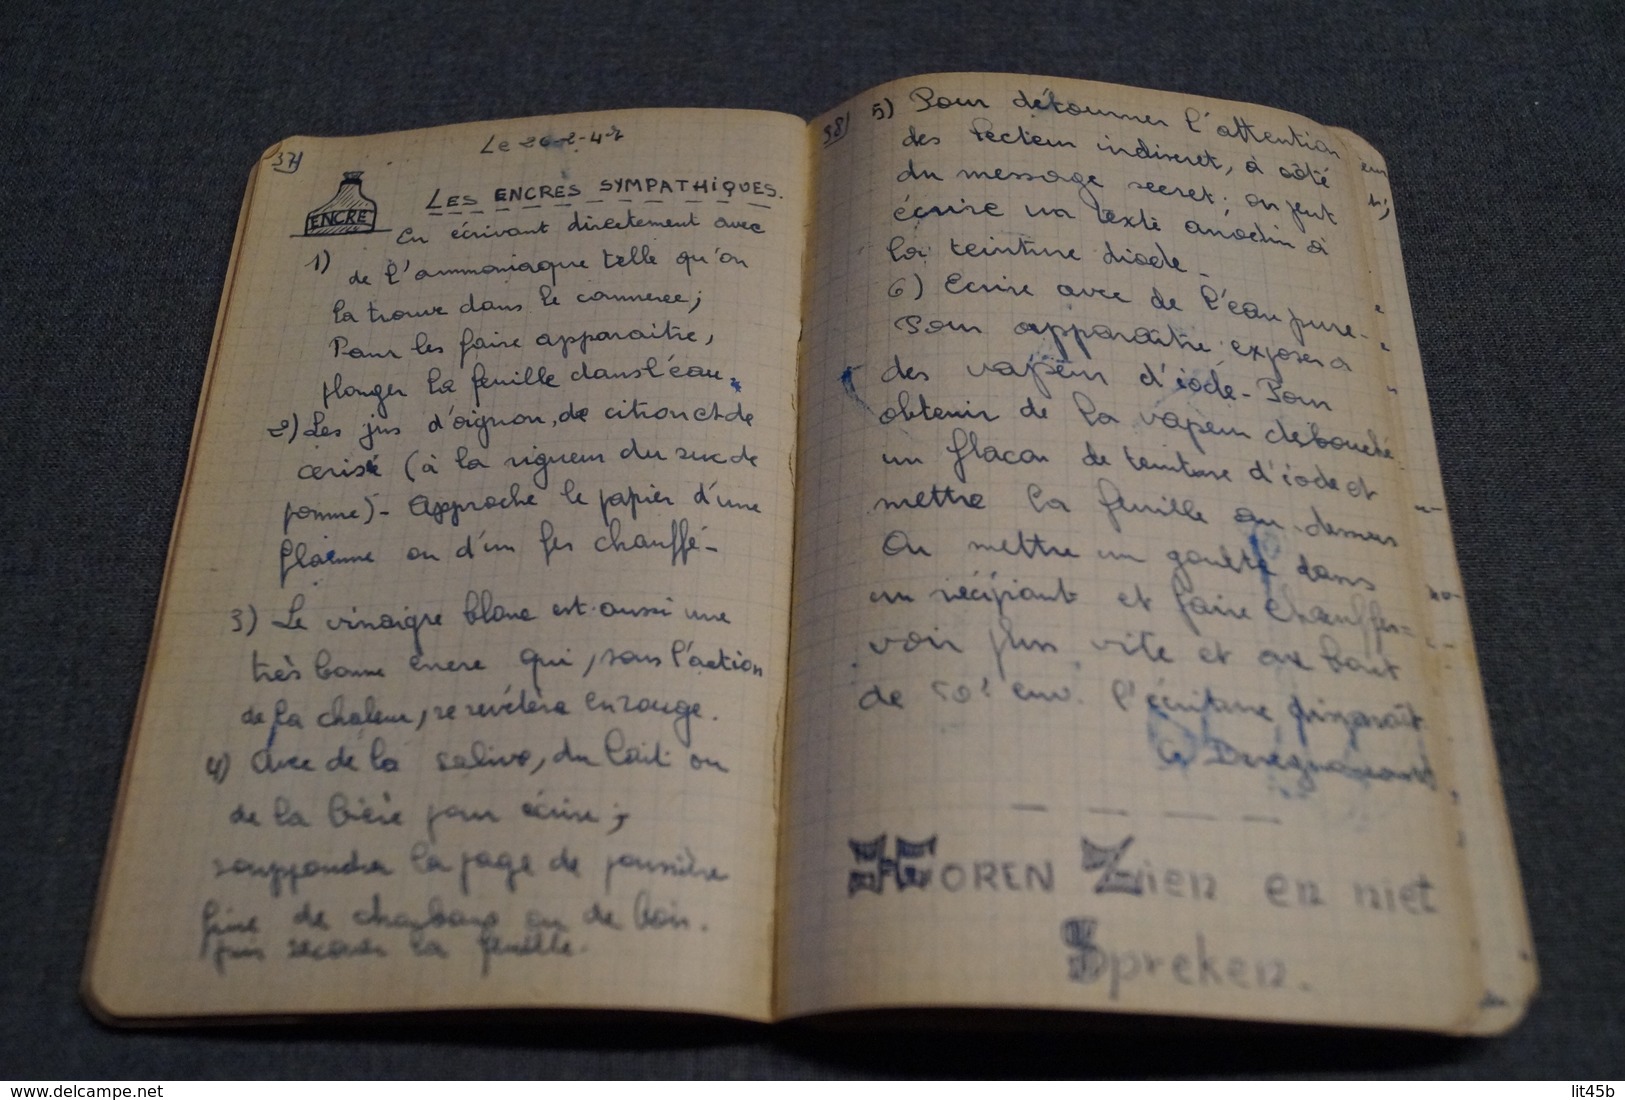 37)
Le 26-2-47
ENCRE
LES ENCRES SYMPATHIQUES.
En écrivant directement avec
1) de l'ammoniaque telle qu'on
la trouve dans le commerce;
Pour les faire apparaitre,
plonger la feuille dans l'eau.
2) Les jus d'oignon, de citron et de
cerise (à la rigueur du suc de
pomme) - Approche le papier d'une
flamme ou d'un fer chauffé -
3) Le vinaigre blanc est aussi une
très bonne encre qui, sous l'action
de la chaleur, se révélera en rouge.
4) Avec de la salive, du lait ou
de la bière pour écrire;
saupoudrer la page de poussière
fine de charbons ou de bois.
puis secouer la feuille.
38)
5) Pour détourner l'attention
des lecteur indiscret, à côté
du message secret; on peut
écrire un texte anodin à
la teinture diode -
6) Ecrire avec de l'eau pure -
Pour apparaitre; exposer a
des vapeur d'iode - Pour
obtenir de la vapeur debouché
un flacon de teinture d'iode et
mettre la feuille au-dessus
Ou mettre un goutte dans
un récipiant et faire chauffer=
voir plus vite et au bout
de 50' env. l'écriture
HOREN Zien en niet
Spreken.
delcampe.net
lit45b